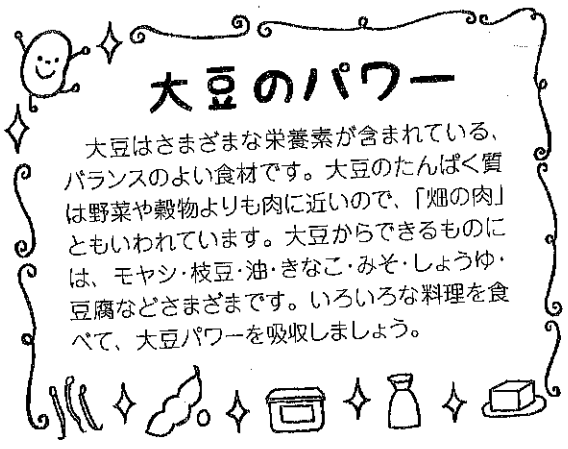 大豆のパワー
大豆はさまざまな栄養素が含まれている、
バランスのよい食材です。大豆のたんぱく質
は野菜や穀物よりも肉に近いので、「畑の肉」
ともいわれています。大豆からできるものに
は、モヤシ・枝豆・油・きなこ・みそ・しょうゆ・
豆腐などさまざまです。いろいろな料理を食
べて、大豆パワーを吸収しましょう。